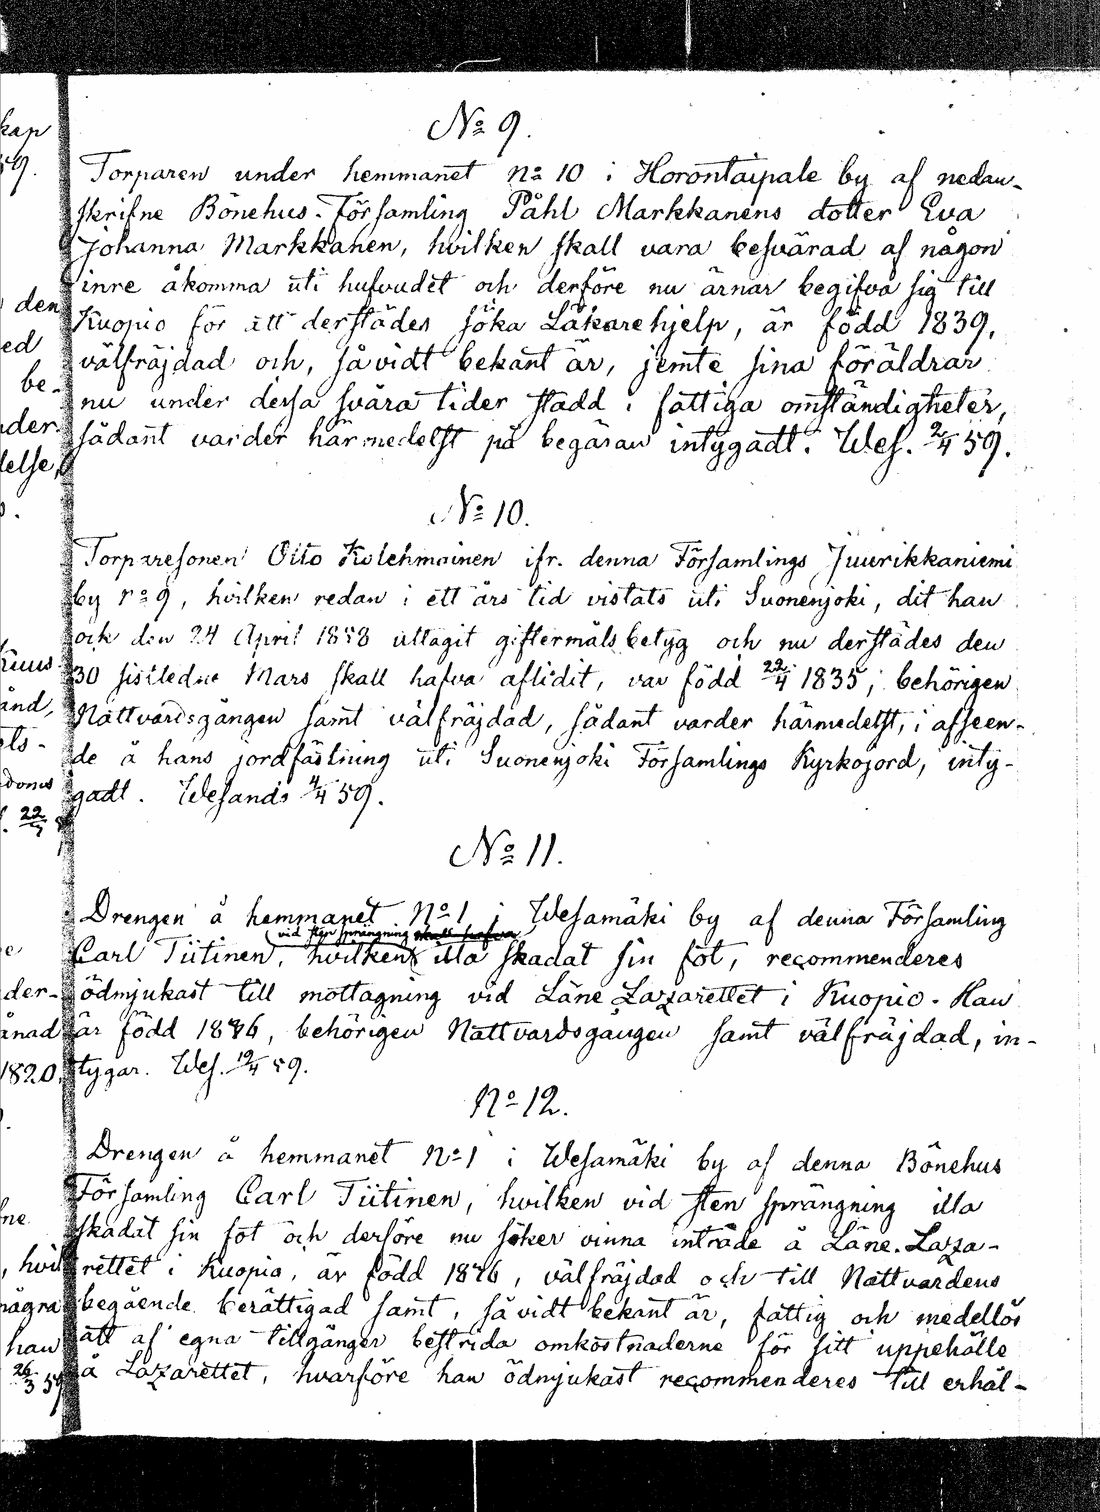 kap
59.
den
ed
be-
nder
delse,
Kuus-
ånd,
ets-
22/3
der-
ånad
1820.
fne
, hvil
några
han
26/3 59
No 9.
Torparen under hemmanet No 10 i Horontaipale by af nedan-
skrifne Bönehus-Församling Påhl Markkanens dotter Eva
Johanna Markkanen, hvilken skall vara besvärad af någon
inre åkomma uti hufvudet och derföre nu ärnar begifva sig till
Kuopio för att derstädes söka Läkarehjelp, är född 1839,
välfräjdad och, såvidt bekant är, jemte sina föräldrar
nu under dessa svåra tider stadd i fattiga omständigheter,
sådant varder härmedelst på begäran intygadt. Wes. 2/4 59.
No 10.
Torparesonen Otto Kolehmainen ifr. denna Församlings Juurikkaniemi
by No 9, hvilken redan i ett års tid vistats uti Suonenjoki, dit han
ock den 24 April 1858 uttagit giftermåls betyg och nu derstädes den
30 sistledne Mars skall hafva aflidit, var född 22/4 1835, behörigen
Nattvardsgången samt välfräjdad, sådant varder härmedelst, i afseen-
de å hans jordfästning uti Suonenjoki Församlings Kyrkogord, inty-
gadt. Wesands 4/4 59.
No 11.
Drengen å hemmanet No 1 i Wesamäki by af denna Församling
vid sten sprängning skall hafva
Carl Tiitinen, hvilken illa skadat sin fot, recommenderes
ödmjukast till mottagning vid Läne Lazarettet i Kuopio. Han
är född 1836, behörigen Nattvardsgången samt välfräjdad, in-
tygar. Wes. 12/4 59.
No 12.
Drengen å hemmanet No 1 i Wesamäki by af denna Bönehus
Församling Carl Tiitinen, hvilken vid sten sprängning illa
skadat sin fot och derföre nu söker vinna inträde å Läne-Laza-
rettet i Kuopio, är född 1836, välfräjdad och till Nattvardens
begående berättigad samt, såvidt bekant är, fattig och medellös
att af egna tillgånger bestrida omkostnaderne för sitt uppehälle
å Lazarettet, hvarföre han ödmjukast recommenderes till erhål-